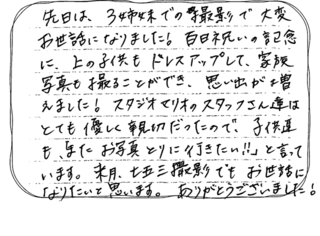 先日は、3姉妹での撮影で大変
お世話になりました！百日祝いの記念
に、上の子供もドレスアップして、家族
写真も撮ることができ、思い出が増
えました！スタジオマリオのスタッフさん達は
とても優しく親切だったので、子供達
も、「またお写真とりに行きたい!!」と言って
います。来月、七五三撮影でもお世話に
なりたいと思います。ありがとうございました！